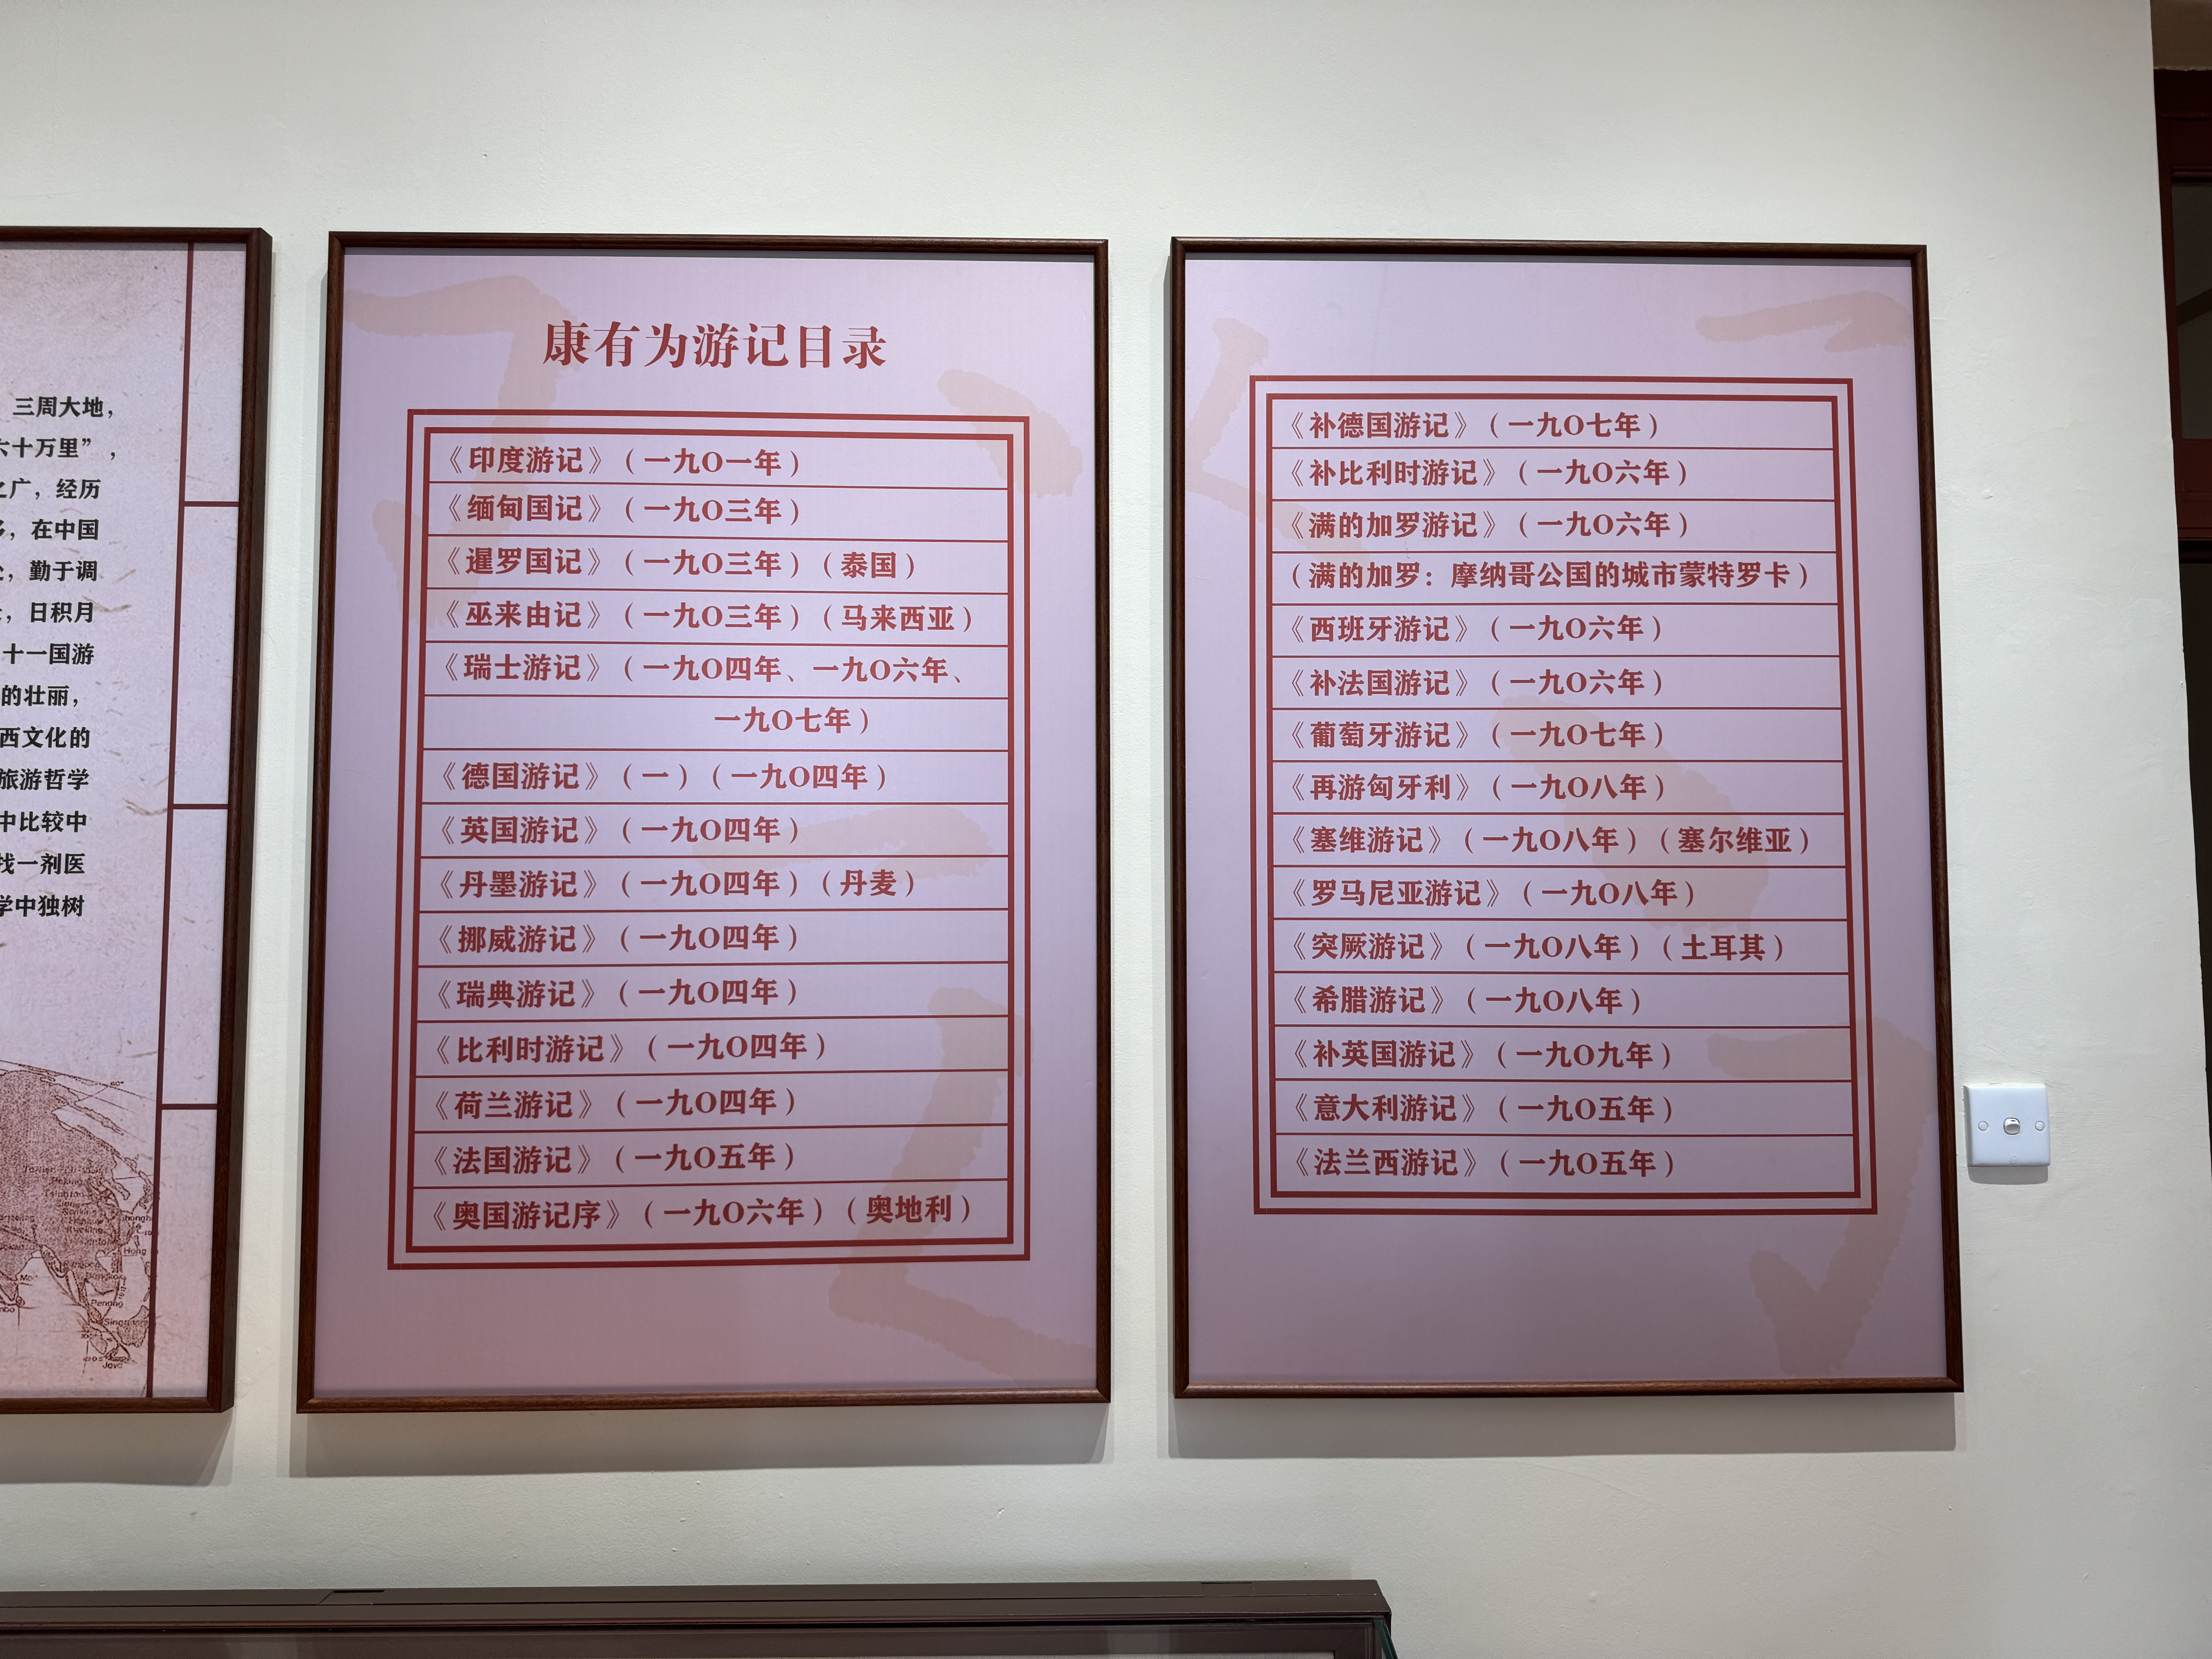 三周大地，
六十万里”，
之广，经历
，在中国
，勤于调
，日积月
十一国游
的壮丽，
西文化的
旅游哲学
中比较中
找一剂医
学中独树
Penang
Java
康有为游记目录
《印度游记》（一九〇一年）
《缅甸国记》（一九〇三年）
《暹罗国记》（一九〇三年）（泰国）
《巫来由记》（一九〇三年）（马来西亚）
《瑞士游记》（一九〇四年、一九〇六年、
一九〇七年）
《德国游记》（一）（一九〇四年）
《英国游记》（一九〇四年）
《丹墨游记》（一九〇四年）（丹麦）
《挪威游记》（一九〇四年）
《瑞典游记》（一九〇四年）
《比利时游记》（一九〇四年）
《荷兰游记》（一九〇四年）
《法国游记》（一九〇五年）
《奥国游记序》（一九〇六年）（奥地利）
《补德国游记》（一九〇七年）
《补比利时游记》（一九〇六年）
《满的加罗游记》（一九〇六年）
（满的加罗：摩纳哥公国的城市蒙特罗卡）
《西班牙游记》（一九〇六年）
《补法国游记》（一九〇六年）
《葡萄牙游记》（一九〇七年）
《再游匈牙利》（一九〇八年）
《塞维游记》（一九〇八年）（塞尔维亚）
《罗马尼亚游记》（一九〇八年）
《突厥游记》（一九〇八年）（土耳其）
《希腊游记》（一九〇八年）
《补英国游记》（一九〇九年）
《意大利游记》（一九〇五年）
《法兰西游记》（一九〇五年）